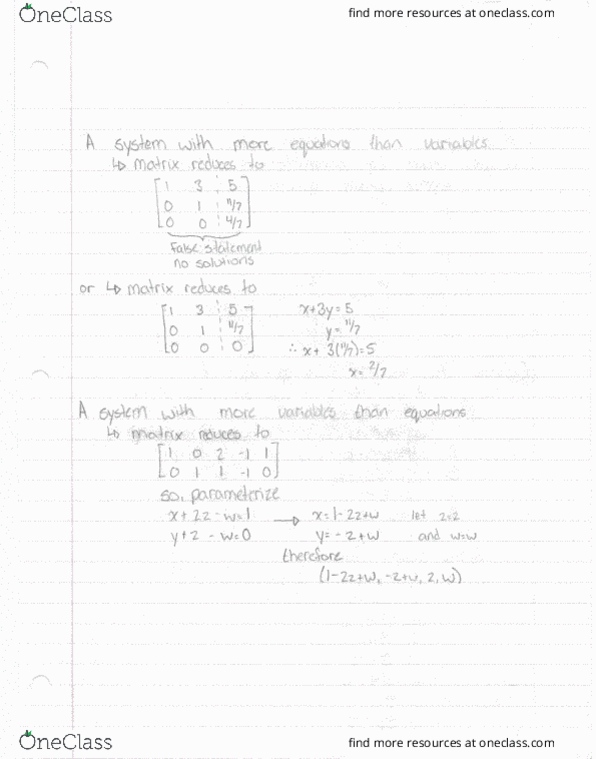 OneClass find more resources at oneclass.com
A system with more equations than variables
↳ matrix reduces to
[1 3 ⋮ 5
0 1 ⋮ 11/7
0 0 ⋮ 4/7]
False statement
no solutions
or ↳ matrix reduces to
[1 3 ⋮ 5 x+3y=5
0 1 ⋮ 11/7 y=11/7
0 0 ⋮ 0] ∴ x+ 3(11/7)=5
x=2/7
A system with more variables than equations
↳ matrix reduces to
[1 0 2 -1 1
0 1 1 -1 0]
so, parameterize
x+2z-w=1 → x=1-2z+w let z=z
y+z-w=0 y=-z+w and w=w
therefore
(1-2z+w, -z+w, z, w)
OneClass find more resources at oneclass.com